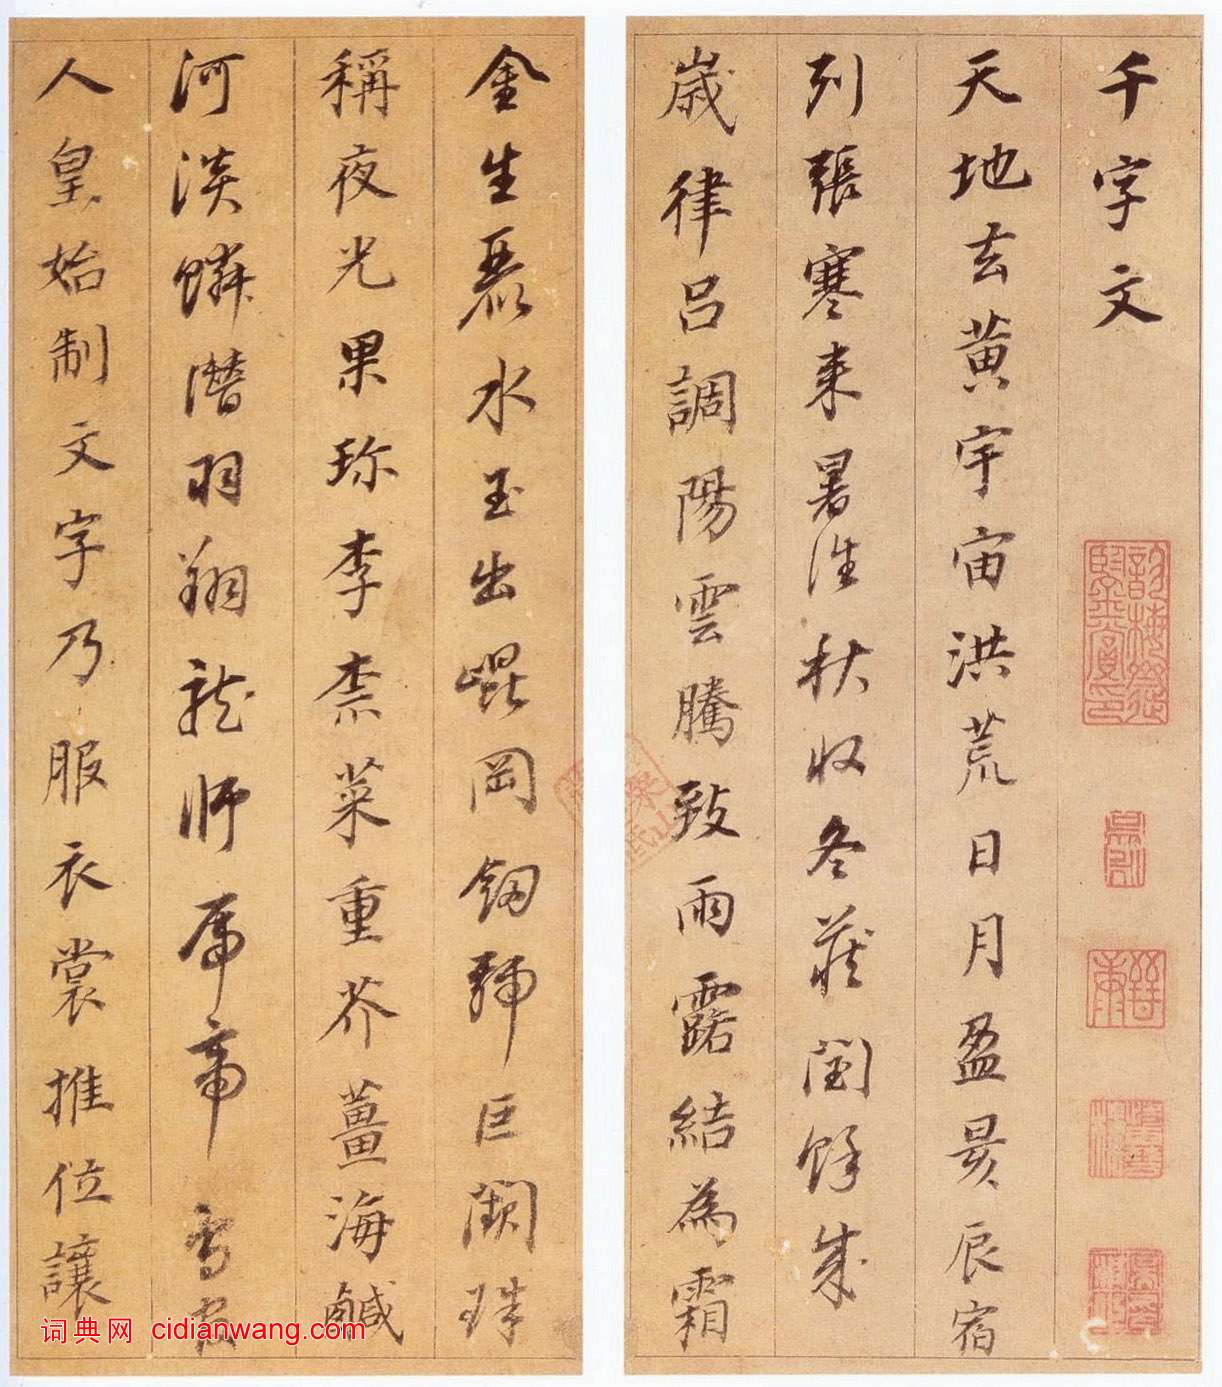 千字文
天地玄黄宇宙洪荒日月盈昃辰宿
列張寒来暑往秋收冬蔵閏餘成
歲律吕調陽雲騰致雨露結為霜
金生麗水玉出崐岡劒號巨闕珠
稱夜光果珎李柰菜重芥薑海鹹
河淡鱗潛羽翔龍師帝鳥官
人皇始制文字乃服衣裳推位讓
词典网 cidianwang.com